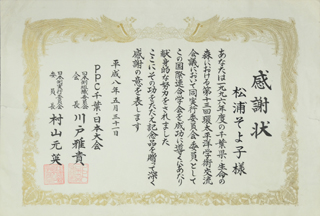 感謝状
松浦そよ子様
あなたは一九九六年の千葉県・生命の
森における第十三回環太平洋学術交流
会議において同実行委員会委員として
この国際連合学会を成功に導くにあたり
献身的な努力をされました
ここにその功をたたえ記念品を贈って深く
感謝の意を表します
平成八年五月三十一日
ppc千葉・日本大会
会長 川戸雅貴
日本実行委員会
委員長 村山元英